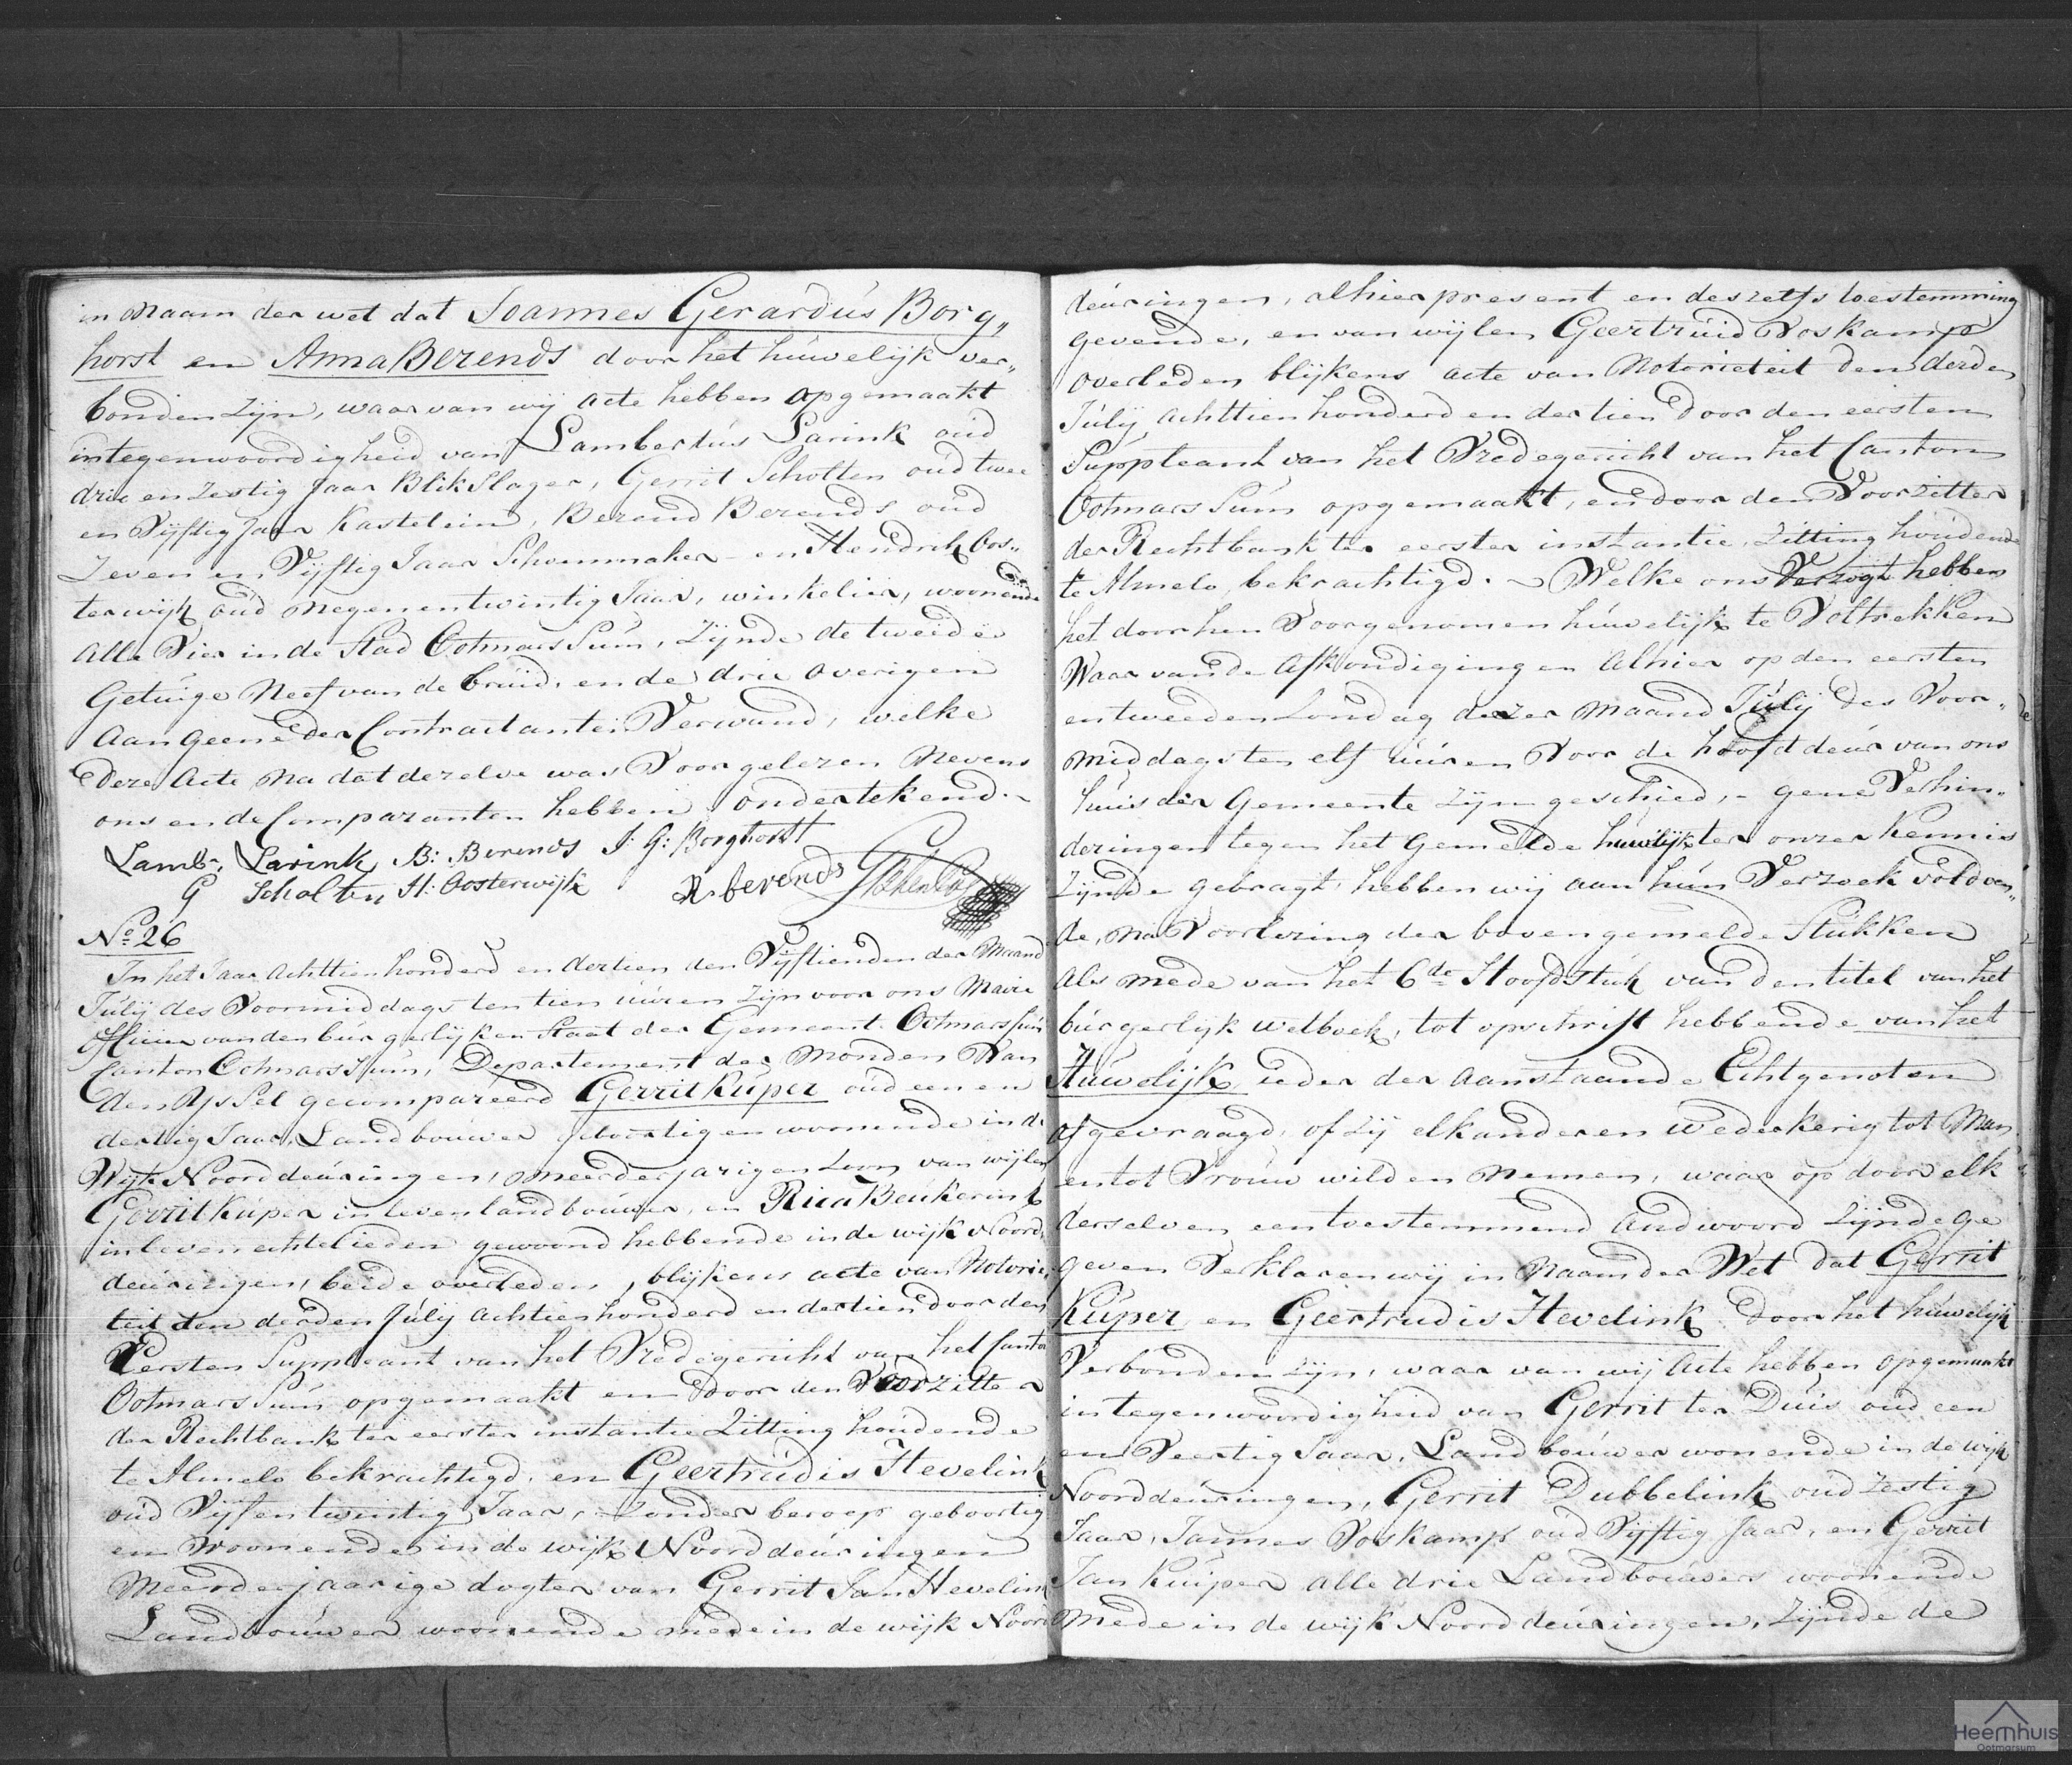 in Naam der wet dat Joannes Gerardús Borg„
horst en Anna Berends door het húwelijk ver„
bonden zijn, waar van wij acte hebben opgemaakt
integenwoordigheid van Lambertús Larink oúd
drie en Zestig Jaar Blikslager, Gerrit Scholten oúd twee
en Vijftig Jaar Kastelein, Berend Berends oúd
Zeven en Vijftig Jaar Schoenmaker en Hendrik Oos„
terwijk oúd Negenentwintig Jaar, winkelier, woonende
Alle Vier in de Stad Ootmarssúm, Zijnde de tweede
Getúige Neef van de brúid, en de drie overigen
Aan geene der Contractanten Verwand, welke
Deze Acte Na dat dezelve was Voorgelezen Nevens
ons en de Comparanten hebben ondertekend.
Lamb. Larink B: Berends J: G: Borghorst
G Scholten H: Oosterwijk A berends
No. 26
In het Jaar Achttienhonderd en dertien den Vijftienden der Maand
Júlij des Voormiddags ten tien úúren zijn voor ons Maire
Officier van den búrgerlijken Staat der Gemeente Ootmarssúm
Canton Ootmarssúm, Departement der Monden Van
den Yssel gecompareerd Gerrit Kúper oúd een en
dertig Jaar, Landboúwer geboortig en woonende in de
Wijk Noorddeúringen, meerderjarigen Zoon van wijlen
Gerrit Kúper in leven landboúwer, en Rica Beúkerink
in leven echtelieden gewoond hebbende in de wijk Noord
deúringen, beide overleden, blijkens acte van Notorie
teit den derden Júlij achtienhonderd en dertien door den
Eersten Suppleant van het Vredegericht van het Canton
Ootmarssúm opgemaakt en door den Voorzitter
der Rechtbank ter eerster instantie Zitting hoúdende
te Almelo bekrachtigd, en Geertrúdis Hevelink
oúd Vijfentwintig Jaar, Zonder beroep geboortig
en Woonende in de wijk Noorddeúringen
Meerderjaarige dogter van Gerrit Jan Hevelink
Landboúwer woonende mede in de wijk Noord
deúringen, alhier present en deszelfs toestemming
gevende, en van wijlen Geertrúid Voskamp
overleden blijkens acte van Notorieteit den derden
Júlij achttienhonderd en dertien door den eersten
Súppleant van het Vredegericht van het Canton
Ootmarssúm opgemaakt, en door den Voorzitter
der Rechtbank ter eerster instantie, Zitting hoúdende
te Almelo, bekrachtigd. Welke ons Verzogt hebben
het door hen Voorgenomen húwelijk te Voltrekken
Waar van de Afkondigingen Alhier op den eersten
en tweeden Zondag dezer Maand Júlij des Voor„
middags ten elf úúren Voor de hoofddeúr van ons
húis der Gemeente zijn geschied, gene Verhin„
deringen tegen het Gemelde húwlijk ter onzer Kennis
Zijnde gebragt hebben wij aan hún Verzoek voldoen„
de, na Voorlezing der bovengemelde Stúkken
als mede van het 6de Hoofdstúk van den titel van het
búrgerlijk wetboek, tot opschrift hebbende van het
Húwelijk, ieder der aanstaande Echtgenoten
afgevraagd, of Zij elkanderen wederkerig tot Man
en tot Vroúw wilden Nemen, waar op door elk
derselven een toestemmend andwoord zijnde ge
geven Verklaren wij in Naam der Wet dat Gerrit
Kúper en Geertrudis Hevelink Door het húwelijk
Verbonden zijn, waar van wij Acte hebben opgemaakt
in tegenwoordigheid van Gerrit ter Dúis oúd een
en Veertig Jaar, Landboúwer wonende in de wijk
Noorddeúringen, Gerrit Dubbelink oúd Zestig
Jaar, Jannes Voskamp oúd Vijftig Jaar, en Gerrit
Jan Kúiper alle drie Landboúwers woonende
Mede in de wijk Noorddeúringen, Zijnde de
Heemhuis
Ootmarsum